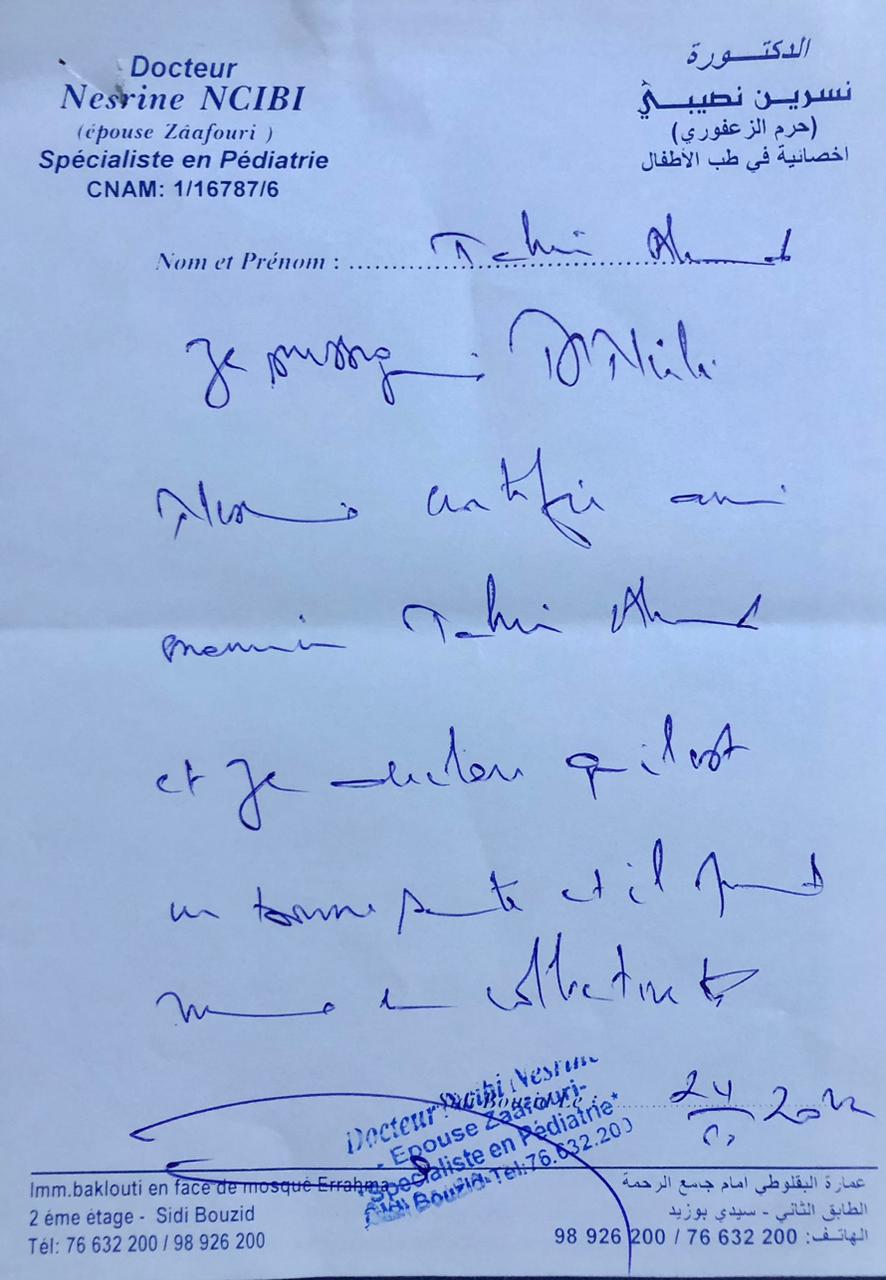 Docteur
Nesrine NCIBI
(épouse Zâafouri )
Spécialiste en Pédiatrie
CNAM: 1/16787/6
الدكتـــورة
نسرين نصيبي
(حرم الزعفوري)
اخصائية في طب الأطفال
Nom et Prénom : Ahmed
Je
certifie
Ahmed
et Je qu'il est
en bonne santé et il peut
en collectivité
24 2022
Docteur Ncibi Nesrine
- Epouse Zaafouri-
Spécialiste en Pédiatrie*
Sidi Bouzid-Tél:76.632.200
Imm.baklouti en face de mosqué Errahma
2 éme étage - Sidi Bouzid
Tél: 76 632 200 / 98 926 200
عمارة البقلوطي امام جامع الرحمة
الطابق الثاني - سيدي بوزيد
الهاتف: 76 632 200 / 98 926 200